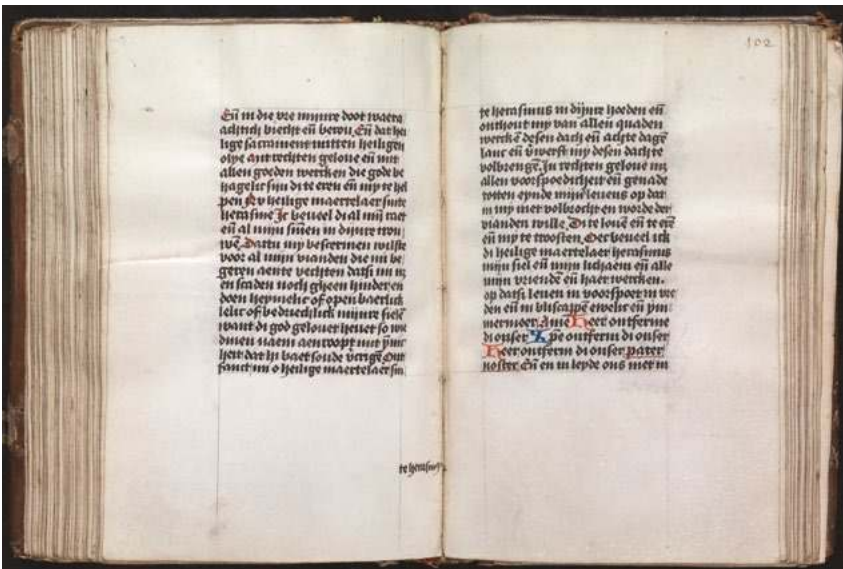 En̄ in die vre mijnre doot waera
achtich biecht en̄ berou. En̄ dat hei
lige sacrament mitten heiligen
olye Ant rechten gelove en̄ mit
allen goeden wercken die gode be
hagelic sijn di te eren en̄ my te hel
pen Nv heilige maertelaer sinte
herasme Ic beveel di al mij̄
en̄ al mijn sinnen in dijnre trou
wē. Dattu my bescermen wilste
voor al mijn vianden die mi be
geren aente vechten datsi mi
en scaden noch gheen hinder en
doen heymelic of openbaerlick
lelic of bedriechlick mijnre sielē
want di god gelovet hevet so wie
dinen naem aenroept mit
heit dat hi baet soude vcrigē Ont
fanct mi o heilige maertelaer sin
te herasmꝰ
102
te herasmus in dijnre hoeden en̄
onthout my van allen quaden
wercken desen dach en̄ achte dagē
lanc en̄ v̄werft my desen dach te
volbrengē. In rechten gelove in
allen voorspoedicheit en̄ genade
totten eynde mijns levens op dat
in my niet volbrocht en worde der
vianden wille. Di te lovē en̄ te erē
en̄ my te troosten. Oec beveel ick
di heilige maertelaer herasmus
mijn siel en̄ mijn lichaem en̄ alle
mijn vriendē en̄ haer wercken.
op datsi leven in voorspoet in vre
den en̄ in bliscappē ewelic en̄ ym
mermeer. Amē Heer ontferme
di onser Xpē ontferm di onser
Heer ontferm di onser pater
noster. En̄ en in leyde ons niet in